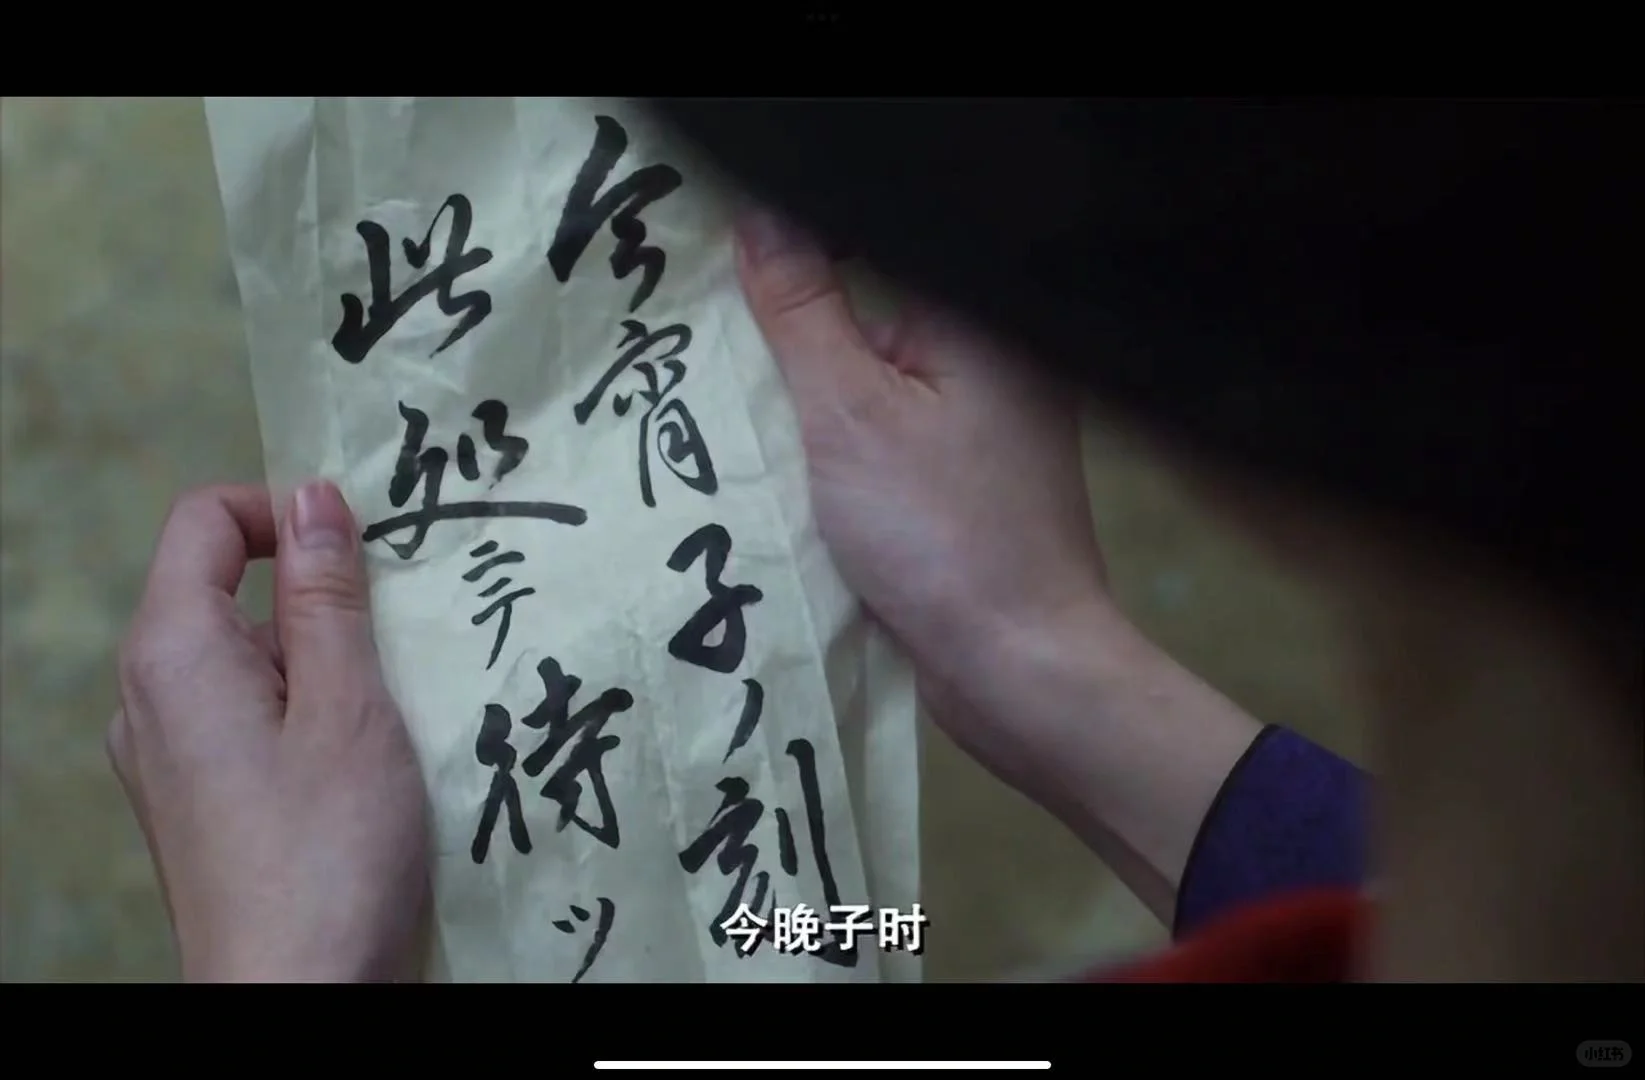 今宵子ノ刻
此処ニテ待ツ
今晚子时
小红书